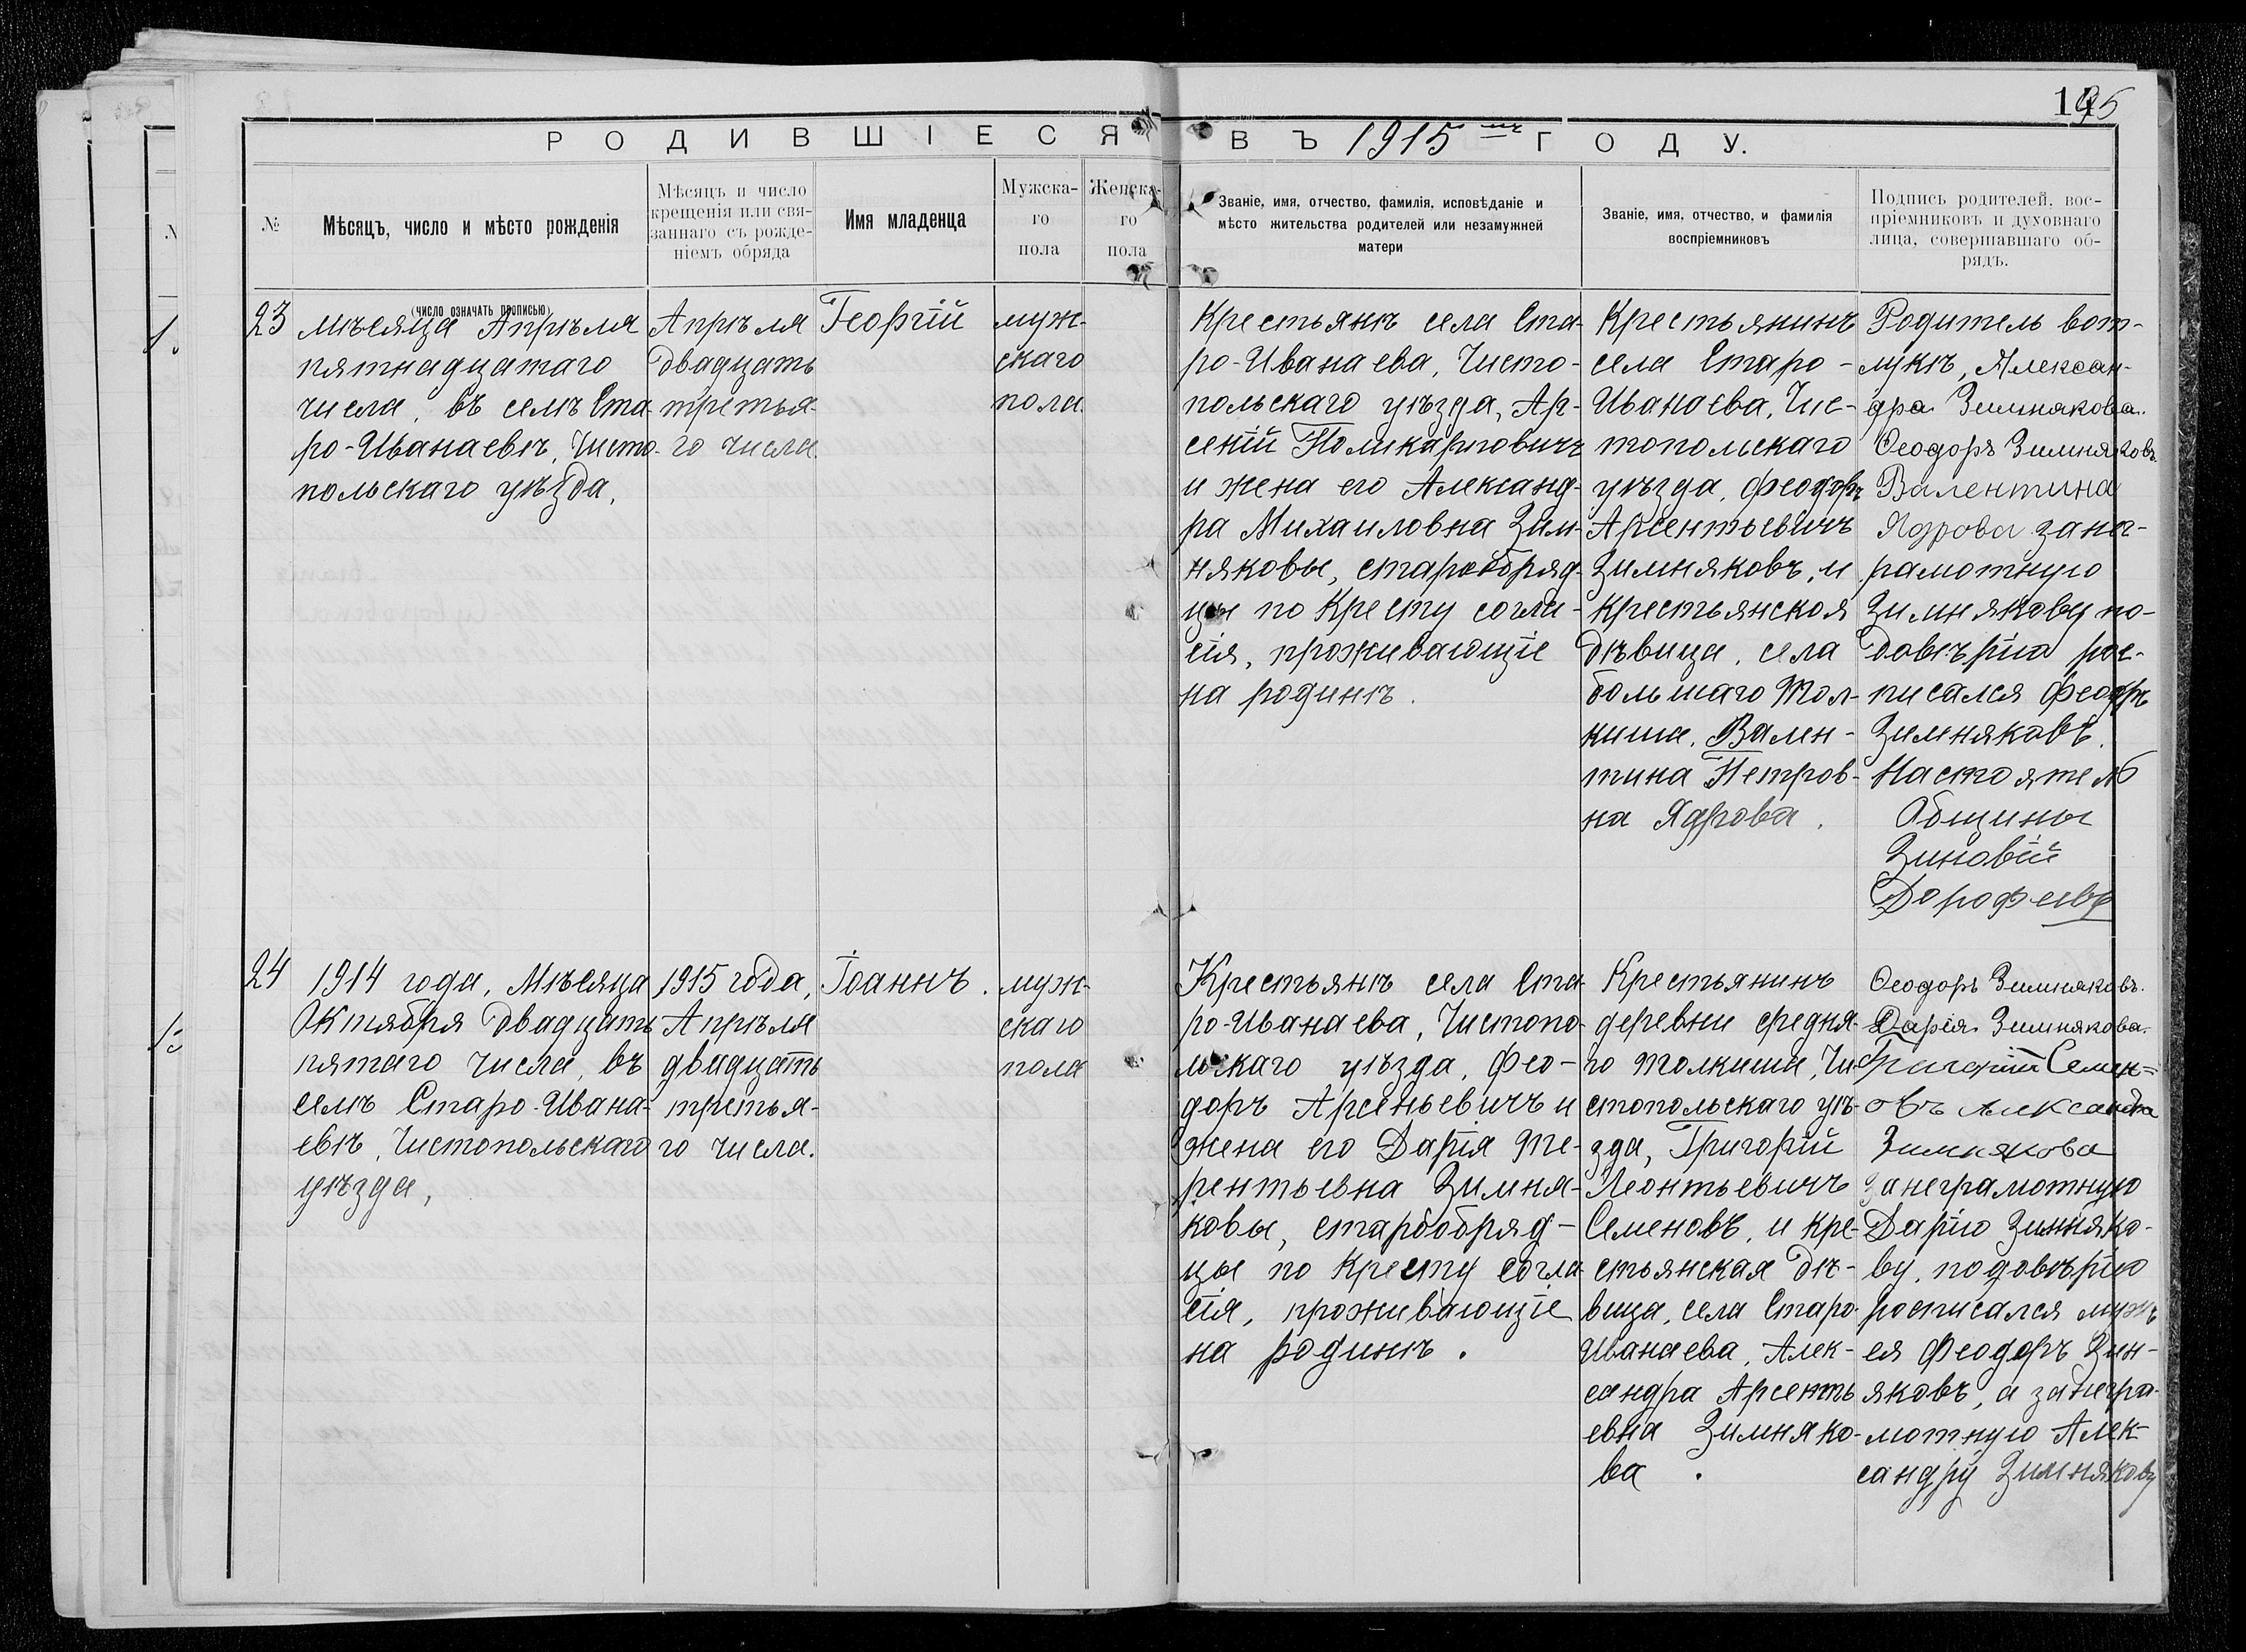 195
РОДИВШІЕСЯ ВЪ 1915мъ ГОДУ.
№
Мѣсяцъ, число и мѣсто рожденія
Мѣсяцъ и число
крещенія или свя-
заннаго съ рожде-
ніемъ обряда
Имя младенца
Мужска-
го
пола
Женска-
го
пола
Званіе, имя, отчество, фамилія, исповѣданіе и
мѣсто жительства родителей или незамужней
матери
Званіе, имя, отчество, и фамилія
воспріемниковъ
Подпись родителей, вос-
пріемниковъ и духовнаго
лица, совершавшаго об-
рядъ.
(число означать прописью)
23
мѣсяца Апрѣля
пятнадцатаго
числа, въ селѣ Ста-
ро-Иванаевѣ, Чисто-
польскаго уѣзда,
Апрѣля
двадцать
третья-
го числа.
Георгій
муж-
скаго
пола.
Крестьянѣ села Ста-
ро-Иванаева, Чисто-
польскаго уѣзда, Ар-
сеній Поликарповичъ
и жена его Александ-
ра Михаиловна Зим-
няковы, старообряд-
цы по Кресту согла-
сія, проживающіе
на родинѣ.
Крестьянинъ
села Старо-
Иванаева, Чис-
топольскаго
уѣзда, Феодоръ
Арсентьевичъ
Зимняковъ, и
крестьянская
дѣвица, села
большаго Тол-
киша, Вален-
тина Петров-
на Ядрова.
Родитель вот-
лукъ, Алексан-
дра Зимнякова.
Ѳеодоръ Зимняковъ.
Валентина
Ядрова занег-
рамотную
Зимнякову по-
довѣрію рос-
писался Феодоръ
Зимняковъ.
Настоятель
Общины
Зиновій
Дорофеевъ
24
1914 года, Мѣсяца
Октября двадцать
пятаго числа, въ
селѣ Старо-Ивана-
евѣ, Чистопольскаго
уѣзда,
1915 года,
Апрѣля
двадцать
третья-
го числа.
Іоаннъ.
муж-
скаго
пола
Крестьянѣ села Ста-
ро-Иванаева, Чистопо-
льскаго уѣзда, Фео-
доръ Арсеньевичъ и
жена его Дарія Те-
рентьевна Зимня-
ковы, старообряд-
цы по Кресту согла-
сія, проживающіе
на родинѣ.
Крестьянинъ
деревни средня-
го Толкиша, Чи-
стопольскаго уѣ-
зда, Григорій
Леонтьевичъ
Семеновъ, и кре-
стьянская дѣ-
вица, села Старо-
Иванаева, Алек-
сандра Арсенть-
евна Зимняко-
ва.
Ѳеодоръ Зимняковъ.
Дарія Зимнякова.
Григорій Семен=
овъ Александра
Зимнякова
занеграмотную
Дарію Зимняко-
ву, подовѣрію
росписался мужъ
ея Феодоръ Зин-
яковъ, а занегра-
мотную Алек-
сандру Зимнякову